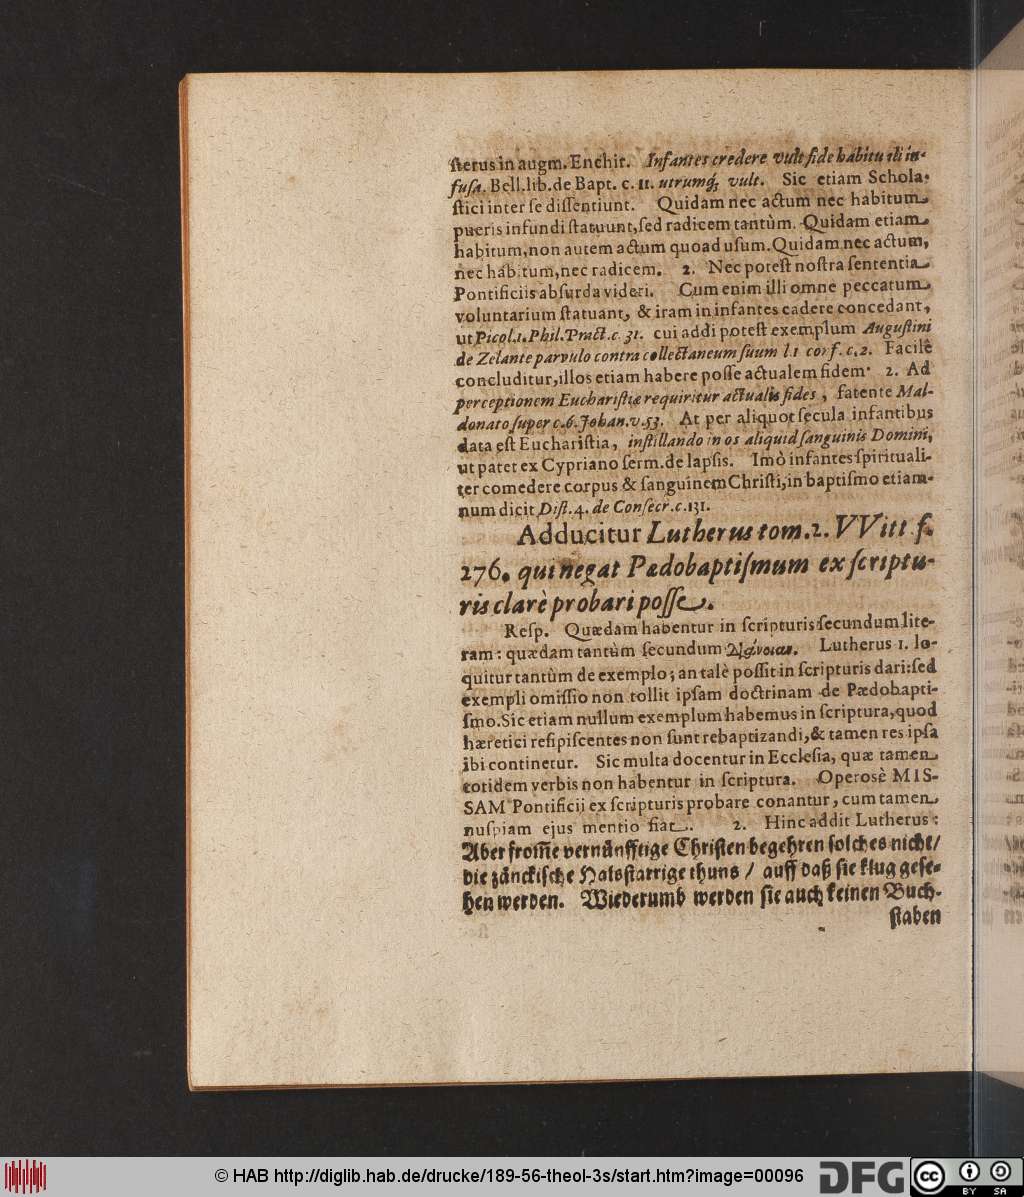 sterus in augm. Enchir. Infantes credere vult fide habitu ili in-
fusa. Bell. lib. de Bapt. c. 11. utrumq́; vult. Sic etiam Schola-
stici inter se dissentiunt. Quidam nec actum nec habitum
pueris infundi statuunt, sed radicem tantùm. Quidam etiam
habitum, non autem actum quoad usum. Quidam nec actum,
nec habitum, nec radicem. 2. Nec potest nostra sententia
Pontificiis absurda videri. Cum enim illi omne peccatum
voluntarium statuant, & iram in infantes cadere concedant,
ut Picol. 1. Phil. Pract. c. 31. cui addi potest exemplum Augustini
de Zelante parvulo contra collectaneum suum l. 1 conf. c. 2. Facilè
concluditur, illos etiam habere posse actualem fidem. 2. Ad
perceptionem Eucharistiæ requiritur actualis fides, fatente Mal-
donato super c. 6. Johan. v. 53. At per aliquot secula infantibus
data est Eucharistia, instillando in os aliquid sanguinis Domini,
ut patet ex Cypriano serm. de lapsis. Imò infantes spirituali-
ter comedere corpus & sanguinem Christi, in baptismo etiam-
num dicit Dist. 4. de Consecr. c. 131.
Adducitur Lutherus tom. 2. VVitt f.
276. qui negat Pædobaptismum ex scriptu-
ris clarè probari posse.
Resp. Quædam habentur in scripturis secundum lite-
ram: quædam tantùm secundum διάνοιαν. Lutherus 1. lo-
quitur tantùm de exemplo; an talè possit in scripturis dari: sed
exempli omissio non tollit ipsam doctrinam de Pædobapti-
smo. Sic etiam nullum exemplum habemus in scriptura, quod
hæretici resipiscentes non sunt rebaptizandi, & tamen res ipsa
ibi continetur. Sic multa docentur in Ecclesia, quæ tamen
totidem verbis non habentur in scriptura. Operosè MIS-
SAM Pontificii ex scripturis probare conantur, cum tamen
nuspiam ejus mentio fiat. 2. Hinc addit Lutherus:
Aber from̃e vernünfftige Christen begehren solches nicht/
die zänckische Halsstarrige thuns / auff daß sie klug gese-
hen werden. Wiederumb werden sie auch keinen Buch-
staben
© HAB http://diglib.hab.de/drucke/189-56-theol-3s/start.htm?image=00096
DFG
cc BY SA